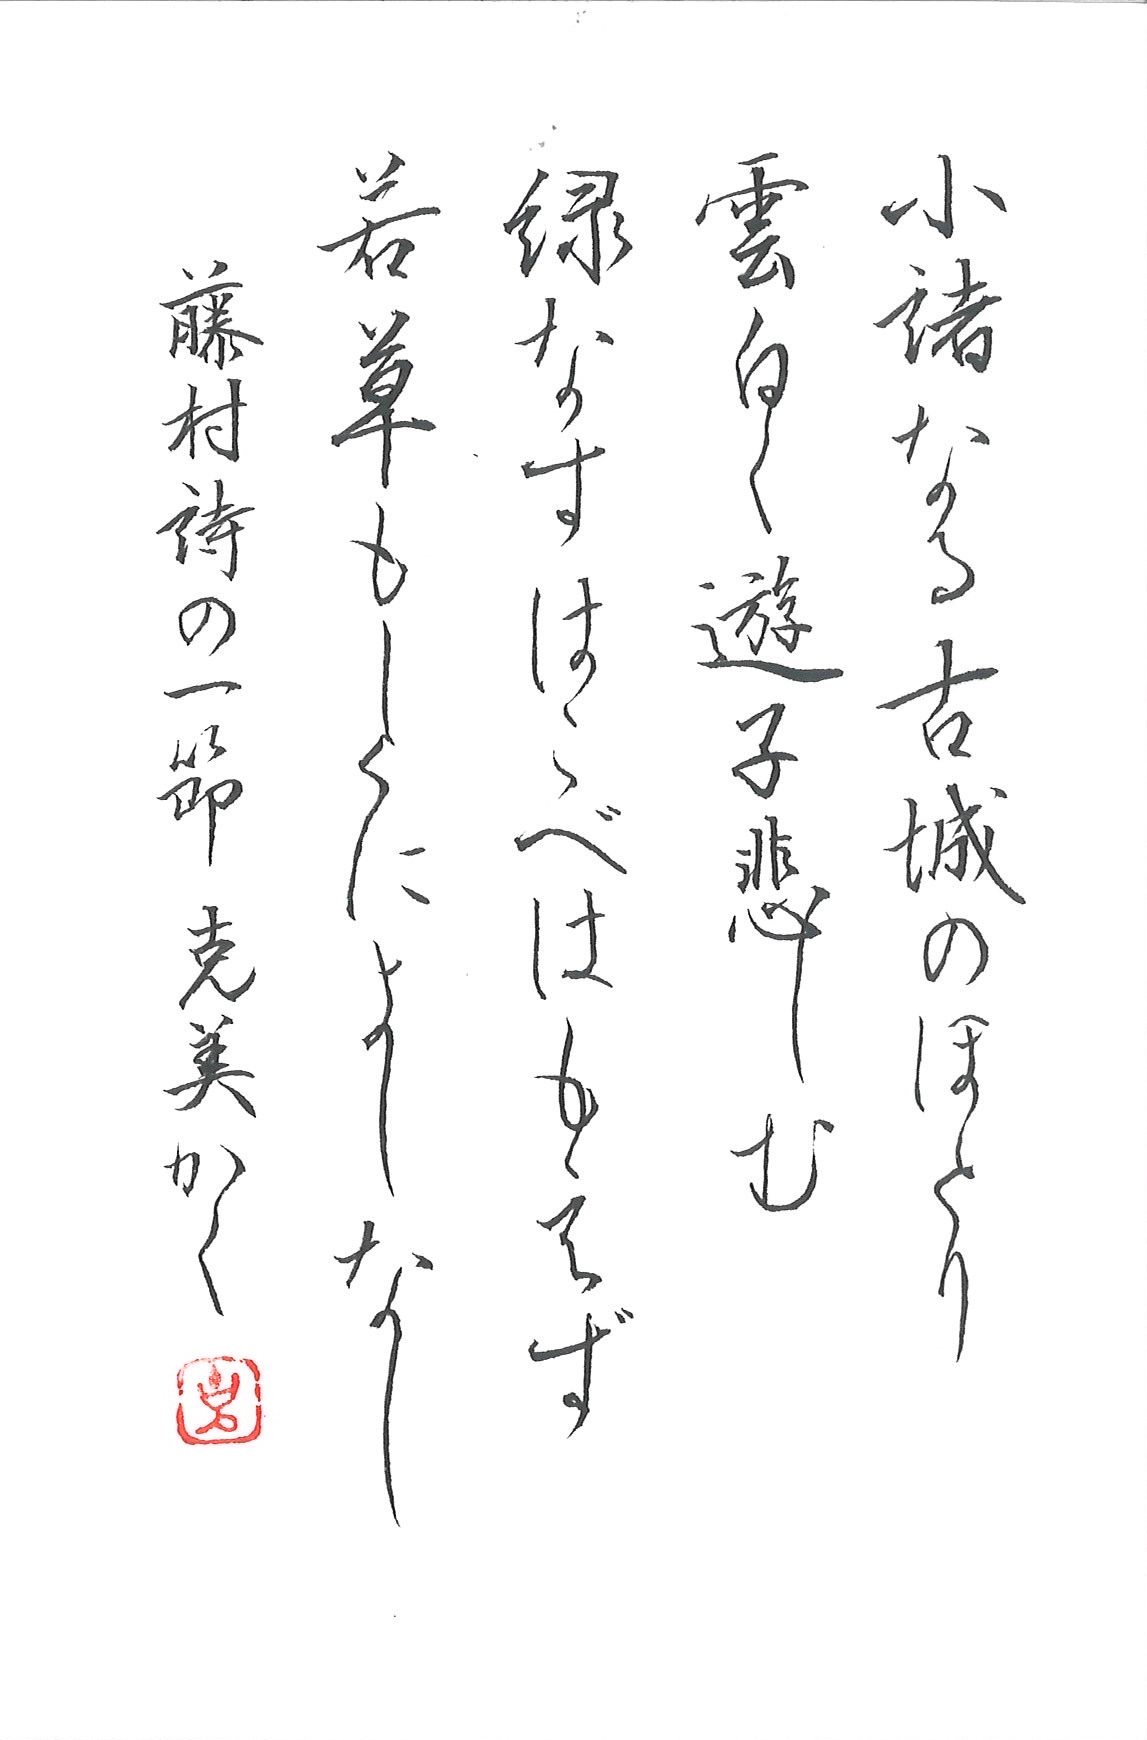 小諸なる古城のほとり
雲白く遊子悲しむ
緑なすはこべはもえず
若草もしくによしなし
藤村詩の一節 克美かく